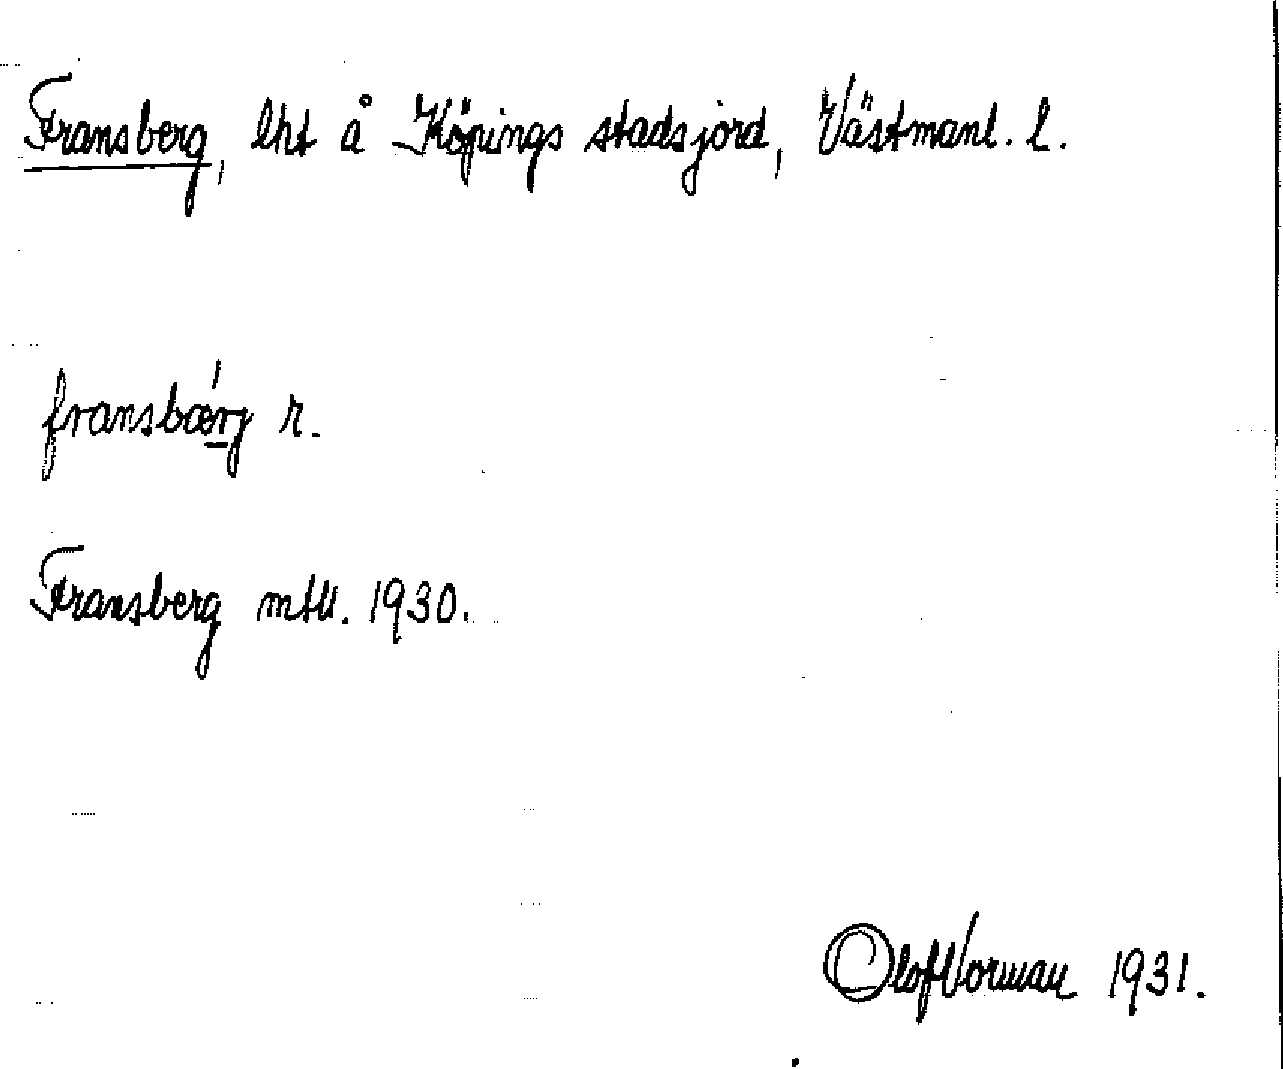 Fransberg, lht å Köpings stadsjord, Västmanl. l.
fransbæŕ̲j r.
Fransberg mtll. 1930.
Olof Vorman 1931.